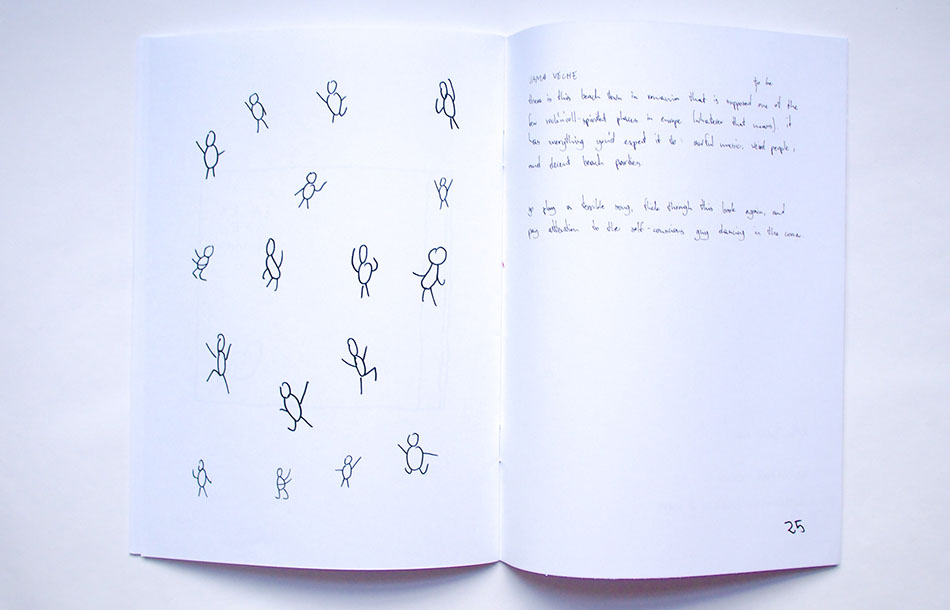 VAMA VECHE
to be
there is this beach town in romania that is supposed one of the
few rock'n'roll-spirited places in europe (whatever that means). it
has everything you'd expect it to: awful music, weird people,
and decent beach parties
go play a terrible song, flick through this book again, and
pay attention to the self-conscious guy dancing in the corner
25